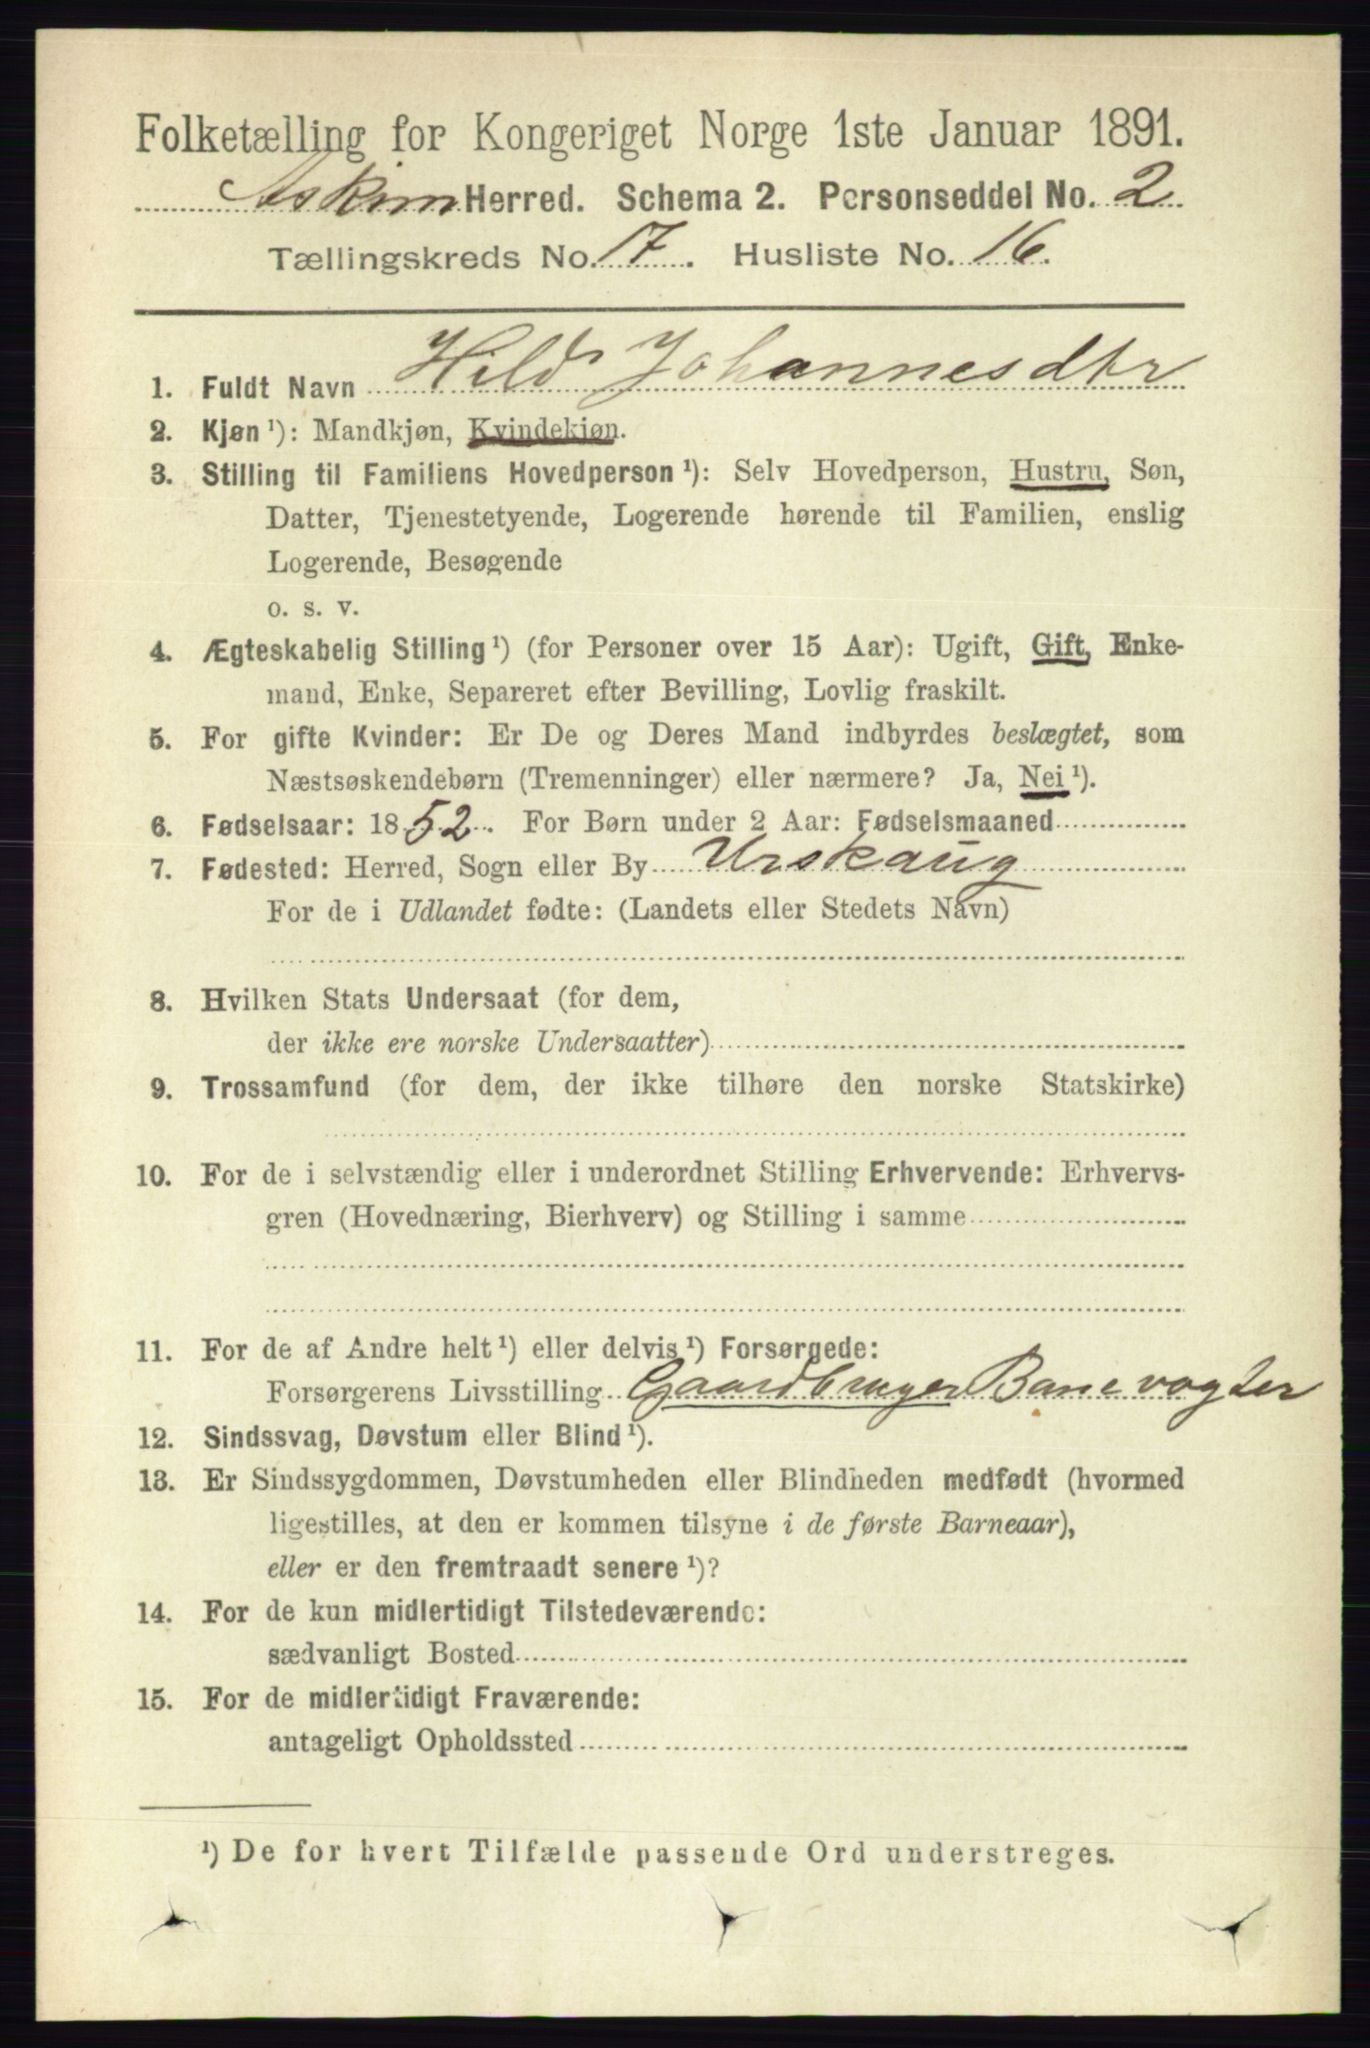 Folketælling for Kongeriget Norge 1ste Januar 1891.
Askim Herred. Schema 2. Personseddel No. 2
Tællingskreds No. 17. Husliste No. 16.
1. Fuldt Navn Hild Johannesdtr
2. Kjøn ¹): Mandkjøn, Kvindekjøn.
3. Stilling til Familiens Hovedperson ¹): Selv Hovedperson, Hustru, Søn,
Datter, Tjenestetyende, Logerende hørende til Familien, enslig
Logerende, Besøgende
o. s. v.
4. Ægteskabelig Stilling ¹) (for Personer over 15 Aar): Ugift, Gift, Enke-
mand, Enke, Separeret efter Bevilling, Lovlig fraskilt.
5. For gifte Kvinder: Er De og Deres Mand indbyrdes beslægtet, som
Næstsøskendebørn (Tremenninger) eller nærmere? Ja, Nei ¹).
6. Fødselsaar: 1852. For Børn under 2 Aar: Fødselsmaaned
7. Fødested: Herred, Sogn eller By Urskaug
For de i Udlandet fødte: (Landets eller Stedets Navn)
8. Hvilken Stats Undersaat (for dem,
der ikke ere norske Undersaatter)
9. Trossamfund (for dem, der ikke tilhøre den norske Statskirke)
10. For de i selvstændig eller i underordnet Stilling Erhvervende: Erhvervs-
gren (Hovednæring, Bierhverv) og Stilling i samme
11. For de af Andre helt ¹) eller delvis ¹) Forsørgede:
Forsørgerens Livsstilling Gaardbruger Banevogter
12. Sindssvag, Døvstum eller Blind ¹).
13. Er Sindssygdommen, Døvstumheden eller Blindheden medfødt (hvormed
ligestilles, at den er kommen tilsyne i de første Barneaar),
eller er den fremtraadt senere ¹)?
14. For de kun midlertidigt Tilstedeværende:
sædvanligt Bosted
15. For de midlertidigt Fraværende:
antageligt Opholdssted
¹) De for hvert Tilfælde passende Ord understreges.